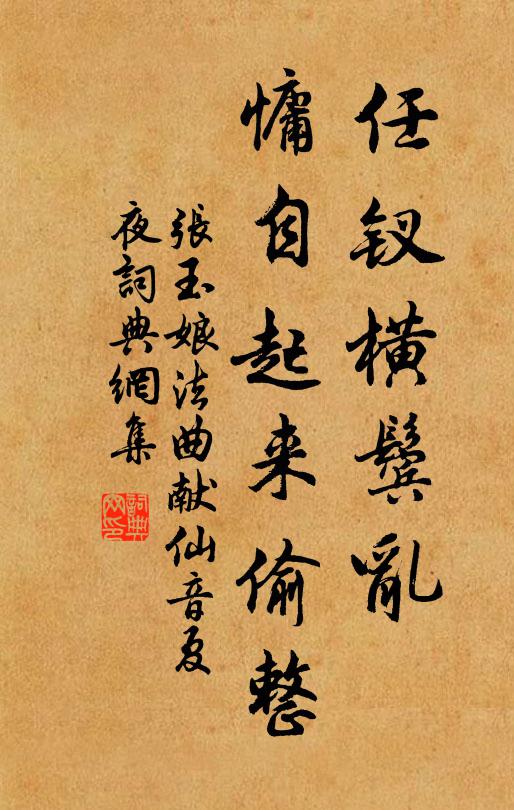 任钗橫鬓亂
慵自起来偷整
張玉娘法曲献仙音夏
夜詞典網集
詞典
網印